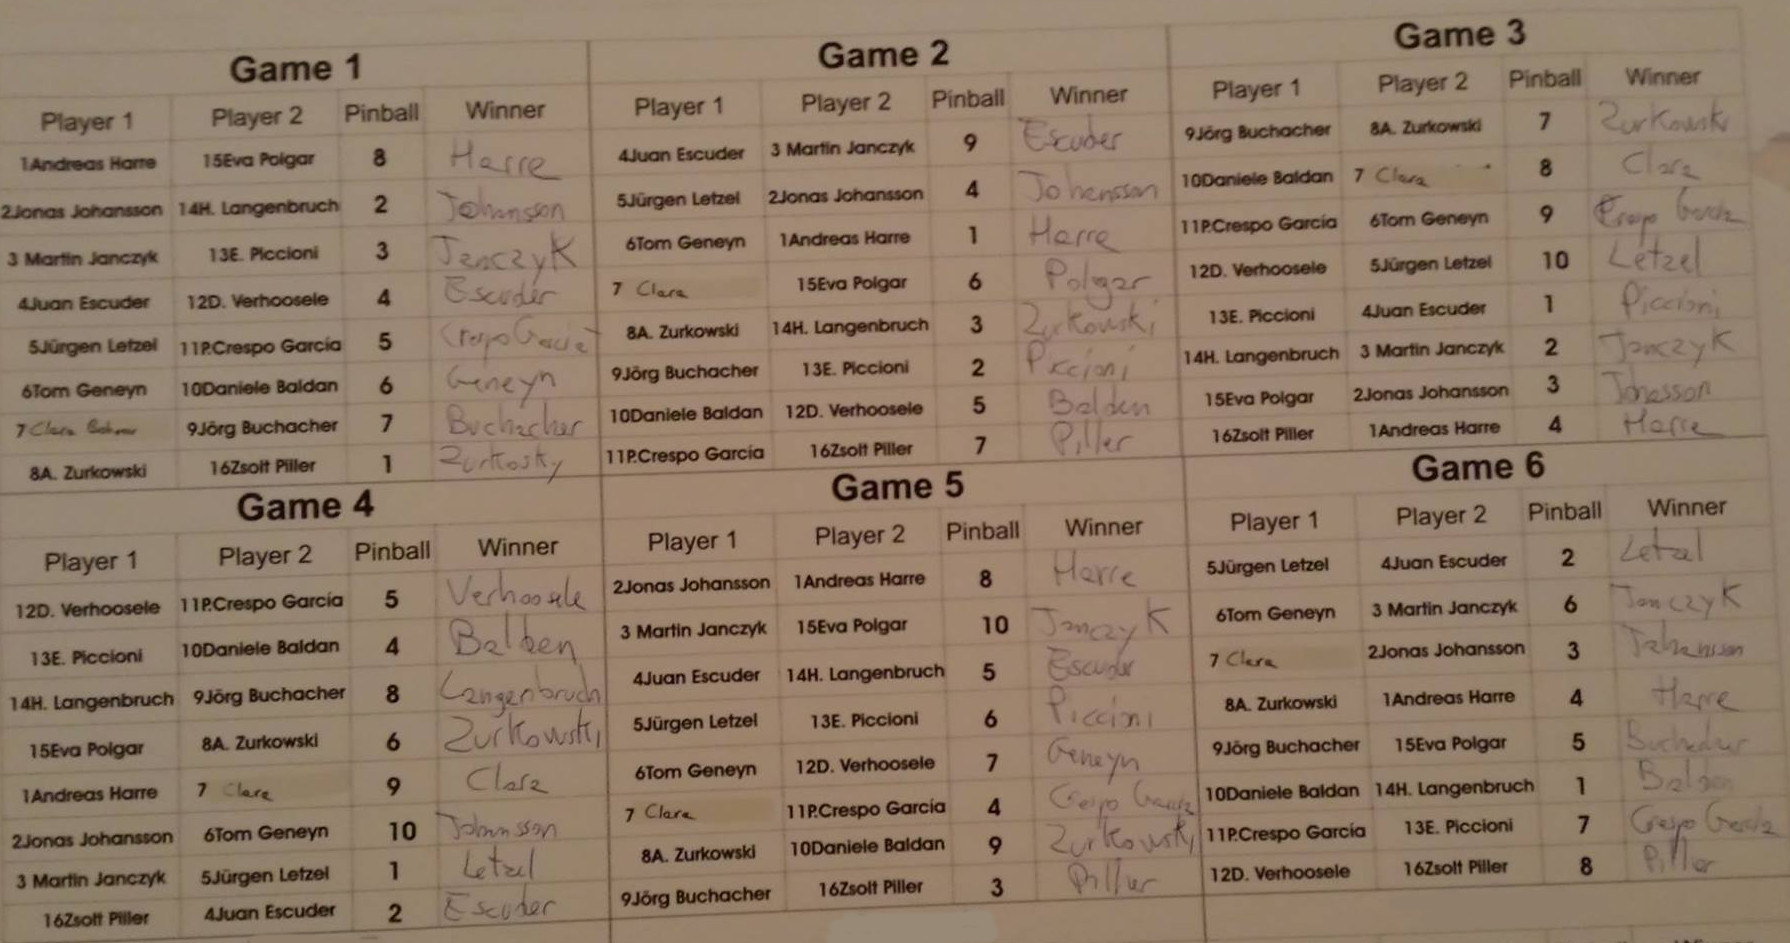 Game 1
Player 1 Player 2 Pinball Winner
1Andreas Harre 15Eva Polgar 8 Harre
2Jonas Johansson 14H. Langenbruch 2 Johansson
3 Martin Janczyk 13E. Piccioni 3 Janczyk
4Juan Escuder 12D. Verhoosele 4 Escuder
5Jürgen Letzel 11P.Crespo García 5 Crespo García
6Tom Geneyn 10Daniele Baldan 6 Geneyn
7 Clara 9Jörg Buchacher 7 Buchacher
8A. Zurkowski 16Zsolt Piller 1 Zurkosky
Game 2
Player 1 Player 2 Pinball Winner
4Juan Escuder 3 Martin Janczyk 9 Escuder
5Jürgen Letzel 2Jonas Johansson 4 Johansson
6Tom Geneyn 1Andreas Harre 1 Harre
7 Clara 15Eva Polgar 6 Polgar
8A. Zurkowski 14H. Langenbruch 3 Zurkowski
9Jörg Buchacher 13E. Piccioni 2 Piccioni
10Daniele Baldan 12D. Verhoosele 5 Balden
11P.Crespo García 16Zsolt Piller 7 Piller
Game 3
Player 1 Player 2 Pinball Winner
9Jörg Buchacher 8A. Zurkowski 7 Zurkowski
10Daniele Baldan 7 Clara 8 Clara
11P.Crespo García 6Tom Geneyn 9 Crespo García
12D. Verhoosele 5Jürgen Letzel 10 Letzel
13E. Piccioni 4Juan Escuder 1 Piccioni
14H. Langenbruch 3 Martin Janczyk 2 Janczyk
15Eva Polgar 2Jonas Johansson 3 Johasson
16Zsolt Piller 1Andreas Harre 4 Harre
Game 4
Player 1 Player 2 Pinball Winner
12D. Verhoosele 11P.Crespo García 5 Verhoosele
13E. Piccioni 10Daniele Baldan 4 Balden
14H. Langenbruch 9Jörg Buchacher 8 Langenbruch
15Eva Polgar 8A. Zurkowski 6 Zurkowski
1Andreas Harre 7 Clara 9 Clara
2Jonas Johansson 6Tom Geneyn 10 Johansson
3 Martin Janczyk 5Jürgen Letzel 1 Letzel
16Zsolt Piller 4Juan Escuder 2 Escuder
Game 5
Player 1 Player 2 Pinball Winner
2Jonas Johansson 1Andreas Harre 8 Harre
3 Martin Janczyk 15Eva Polgar 10 Janczyk
4Juan Escuder 14H. Langenbruch 5 Escuder
5Jürgen Letzel 13E. Piccioni 6 Piccioni
6Tom Geneyn 12D. Verhoosele 7 Geneyn
7 Clara 11P.Crespo García 4 Crespo García
8A. Zurkowski 10Daniele Baldan 9 Zurkowski
9Jörg Buchacher 16Zsolt Piller 3 Piller
Game 6
Player 1 Player 2 Pinball Winner
5Jürgen Letzel 4Juan Escuder 2 Letzel
6Tom Geneyn 3 Martin Janczyk 6 Janczyk
7 Clara 2Jonas Johansson 3 Johansson
8A. Zurkowski 1Andreas Harre 4 Harre
9Jörg Buchacher 15Eva Polgar 5 Buchacher
10Daniele Baldan 14H. Langenbruch 1 Baldan
11P.Crespo García 13E. Piccioni 7 Crespo García
12D. Verhoosele 16Zsolt Piller 8 Piller